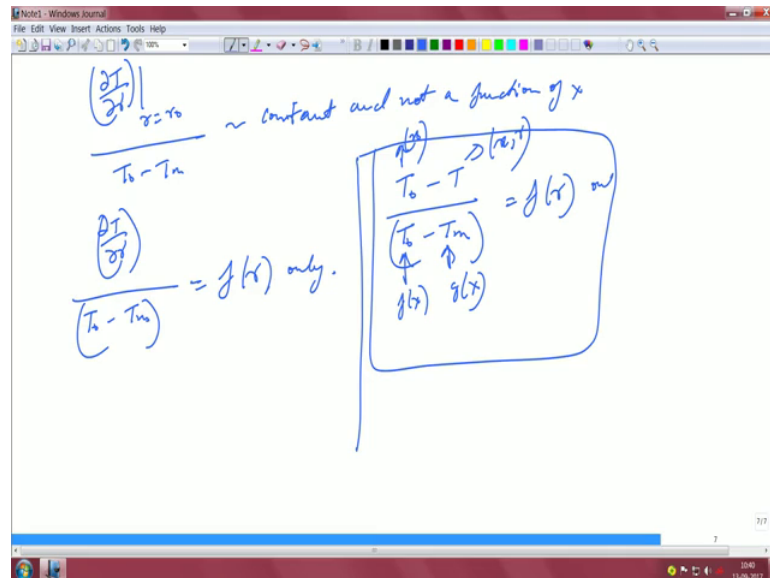 Note1 - Windows Journal
File Edit View Insert Actions Tools Help
100%
B I
(∂T/∂r)|r=r₀ / T₀ - Tm ~ constant and not a function of x
(∂T/∂r) / (T₀ - Tm) = f(r) only.
f(x) (x, r)
T₀ - T / (T₀ - Tm) = f(r) onl
f(x) g(x)
7/7
7
10:40
13-09-2017